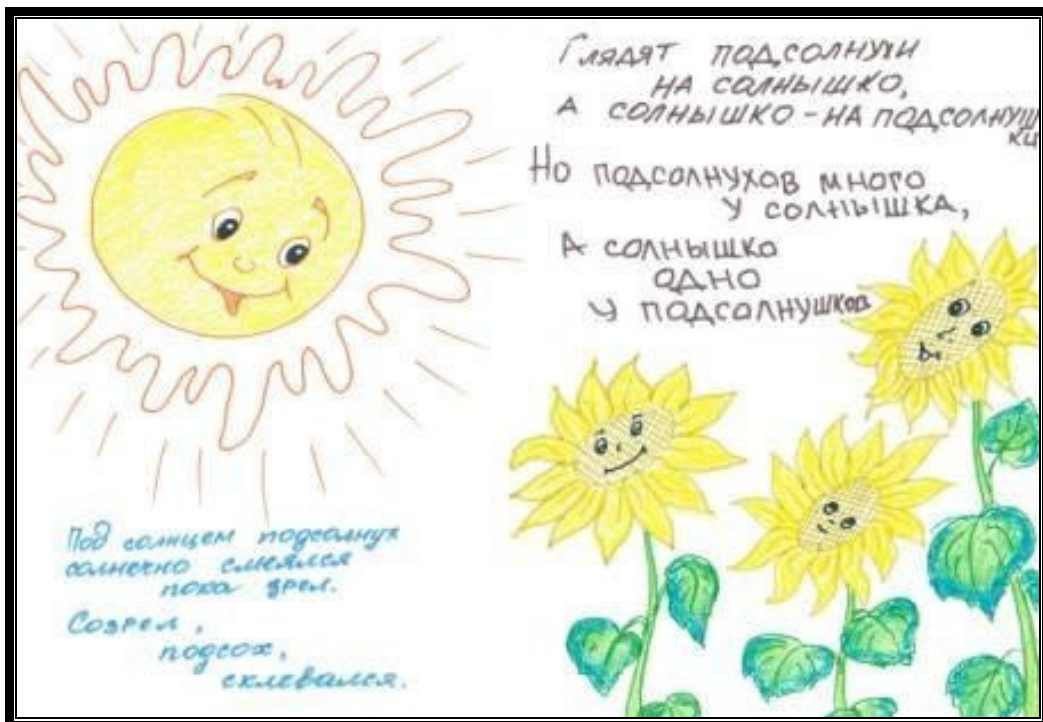 Глядят подсолнухи
на солнышко,
А солнышко – на подсолнуш
ки
Но подсолнухов много
у солнышка,
А солнышко
одно
у подсолнушков
Под солнцем подсолнух
солнечно смеялся
пока зрел.
Созрел,
подсох,
склевался.